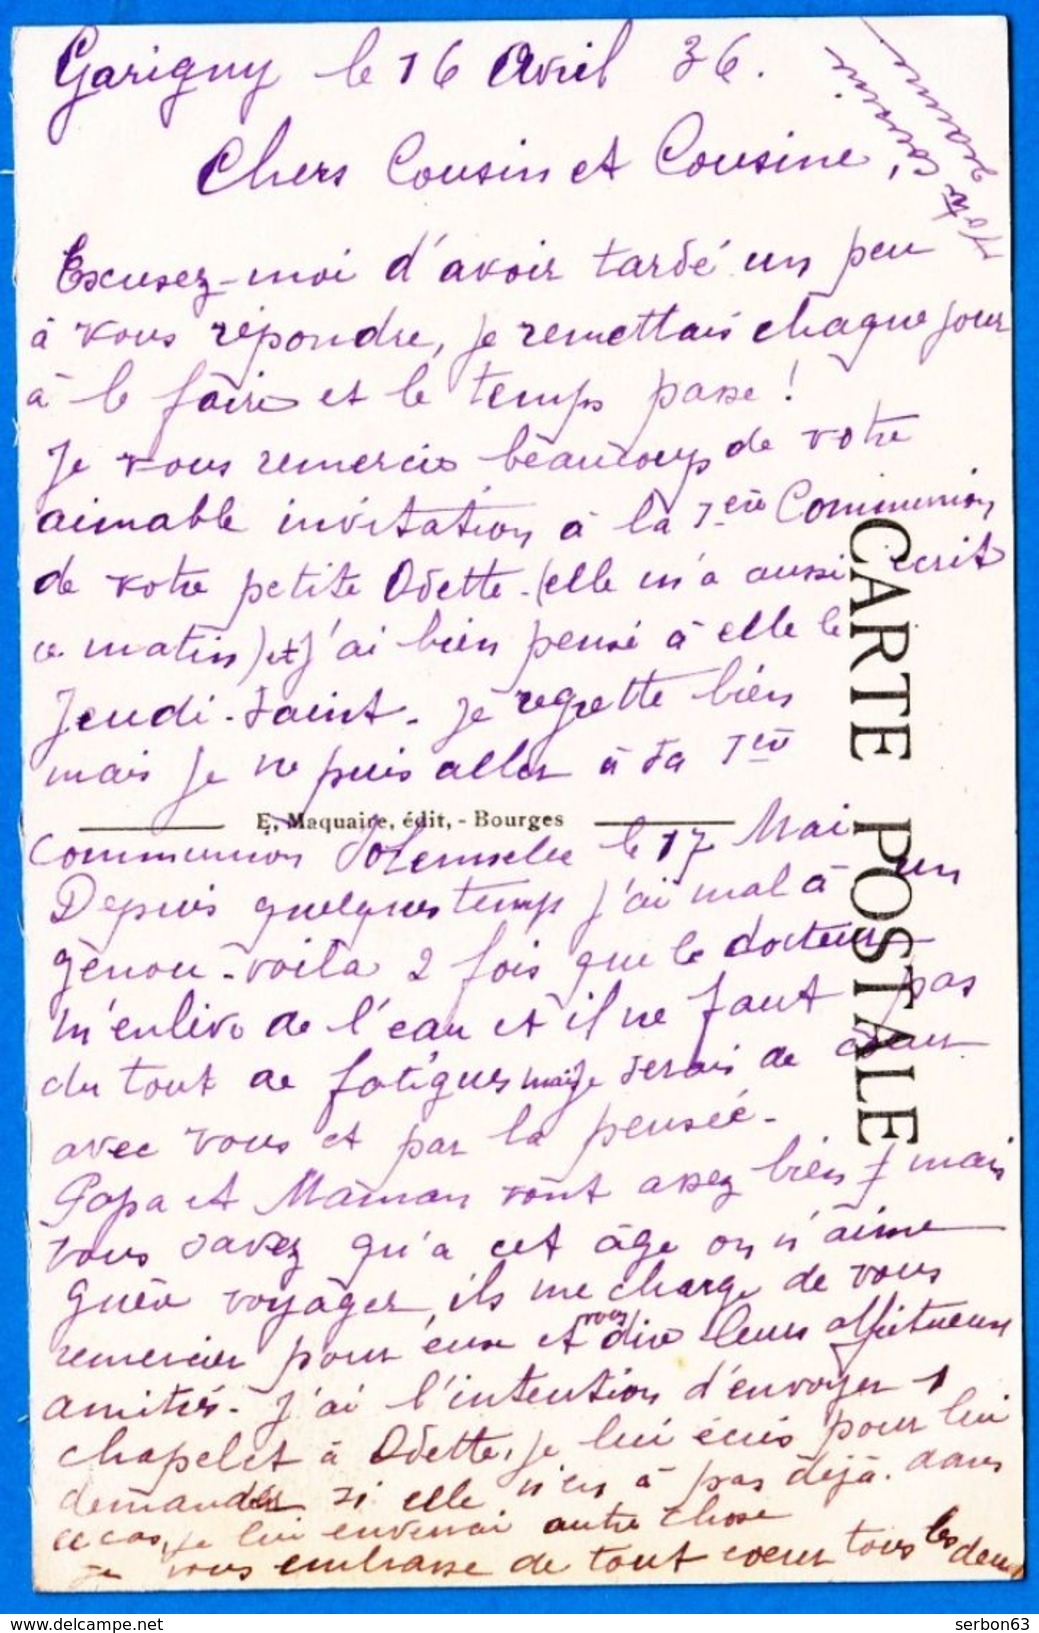 Garigny le 16 Avril 36.
Chers Cousin et Cousine,
Excusez-moi d'avoir tardé un peu
à vous répondre, je remettais chaque jour
à le faire et le temps passe !
Je vous remercie beaucoup de votre
aimable invitation à la 1ère Communion
de votre petite Odette. (elle m'a aussi écrit
ce matin) et j'ai bien pensé à elle le
Jeudi-Saint. je regrette bien
mais je ne puis aller à sa 1ère
E. Maquaire, édit, - Bourges
Communion Solennelle le 17 Mai
Depuis quelques temps j'ai mal à un
genou - voila 2 fois que le docteur
m'enlève de l'eau et il ne faut pas
du tout de fatigues mais je serais de cœur
avec vous et par la pensée.
Papa et Maman vont assez bien mais
vous savez qu'à cet âge on n'aime
guère voyager, ils me charge de vous
remercier pour eux et vous dire leurs affectueuses
amitiés. J'ai l'intention d'envoyer 1
chapelet à Odette, je lui écris pour lui
demander si elle n'en à pas déjà. dans
ce cas, je lui enverrai autre chose
Je vous embrasse de tout cœur tous les deux
Votre cousine
Jeanne
CARTE POSTALE
serbon63